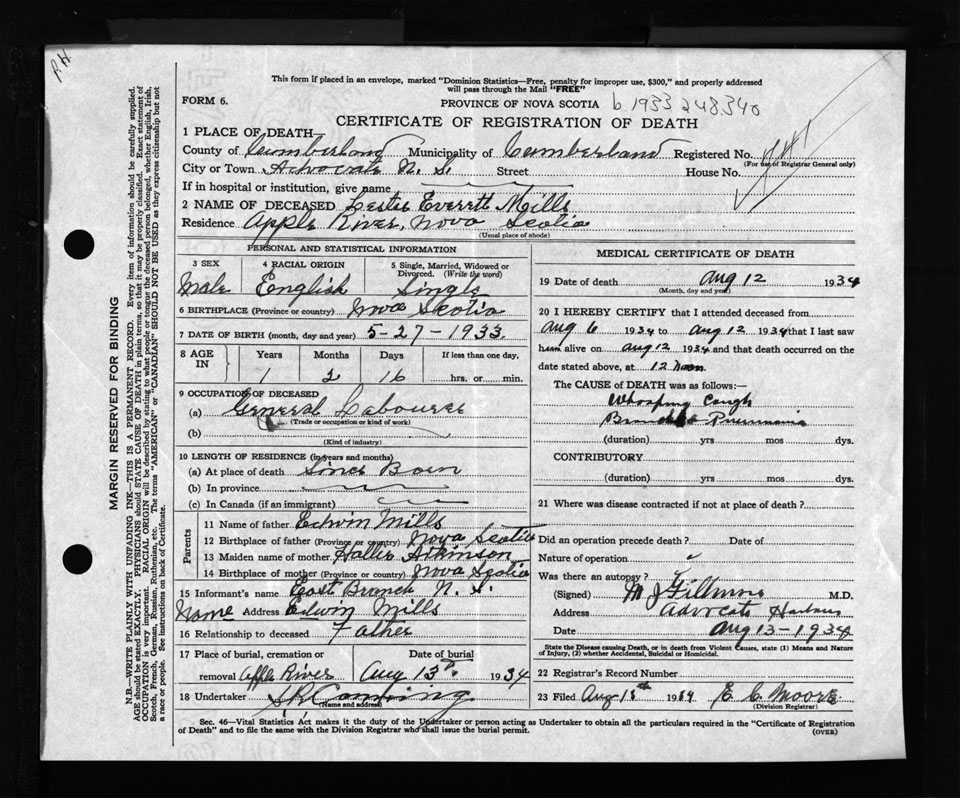 P.H
This form if placed in an envelope, marked "Dominion Statistics—Free, penalty for improper use, $300," and properly addressed
will pass through the Mail "FREE"
FORM 6.
PROVINCE OF NOVA SCOTIA b. 1933 248340
CERTIFICATE OF REGISTRATION OF DEATH
1 PLACE OF DEATH—
County of Cumberland Municipality of Cumberland Registered No.
(For use of Registrar General only)
City or Town Advocate N. S. Street House No.
If in hospital or institution, give name
2 NAME OF DECEASED Leslie Everett Mills
Residence Apple River, Nova Scotia
(Usual place of abode)
PERSONAL AND STATISTICAL INFORMATION
3 SEX 4 RACIAL ORIGIN 5 Single, Married, Widowed or
Divorced. (Write the word)
Male English Single
6 BIRTHPLACE (Province or country) Nova Scotia
7 DATE OF BIRTH (month, day and year) 5-27-1933
8 AGE IN Years Months Days If less than one day,
1 2 16 hrs. or min.
9 OCCUPATION OF DECEASED
(a) General Labourer
(Trade or occupation or kind of work)
(b)
(Kind of industry)
10 LENGTH OF RESIDENCE (in years and months)
(a) At place of death Since Born
(b) In province
(c) In Canada (if an immigrant)
Parents
11 Name of father Edwin Mills
12 Birthplace of father (Province or country) Nova Scotia
13 Maiden name of mother Hallie Atkinson
14 Birthplace of mother (Province or country) Nova Scotia
15 Informant's name East Branch N. S.
Name Address Edwin Mills
16 Relationship to deceased Father
17 Place of burial, cremation or Date of burial
removal Apple River Aug 13th 1934
18 Undertaker
(Name and address)
MEDICAL CERTIFICATE OF DEATH
19 Date of death Aug 12 1934
(Month, day and year)
20 I HEREBY CERTIFY that I attended deceased from
Aug 6 1934 to Aug 12 1934 that I last saw
him alive on Aug 12 1934 and that death occurred on the
date stated above, at 12 Noon
The CAUSE OF DEATH was as follows:—
Whooping Cough
Broncho Pneumonia
(duration) yrs mos dys.
CONTRIBUTORY
(duration) yrs mos dys.
21 Where was disease contracted if not at place of death?
Did an operation precede death? Date of
Nature of operation
Was there an autopsy?
(Signed) M. J. M.D.
Address Advocate Harbour
Date Aug 13-1934
State the Disease causing Death, or in death from Violent Causes, state (1) Means and Nature
of Injury, (2) whether Accidental, Suicidal or Homicidal.
22 Registrar's Record Number
23 Filed Aug 15th 1934 E. C. Moore
(Division Registrar)
Sec. 46—Vital Statistics Act makes it the duty of the Undertaker or person acting as Undertaker to obtain all the particulars required in the "Certificate of Registration
of Death" and to file the same with the Division Registrar who shall issue the burial permit. (OVER)
MARGIN RESERVED FOR BINDING
N.B.—WRITE PLAINLY WITH UNFADING INK—THIS IS A PERMANENT RECORD. Every item of information should be carefully supplied.
AGE should be stated EXACTLY. PHYSICIANS should STATE CAUSE OF DEATH in plain terms, so that it may be properly classified. Exact statement of
OCCUPATION is very important. RACIAL ORIGIN will be described by stating to what people or tongue the deceased person belonged, whether English, Irish,
Scotch, French, German, Russian, Ruthenian, etc. The terms "AMERICAN" or "CANADIAN" SHOULD NOT BE USED as they express citizenship but not
a race or people. See instructions on back of Certificate.